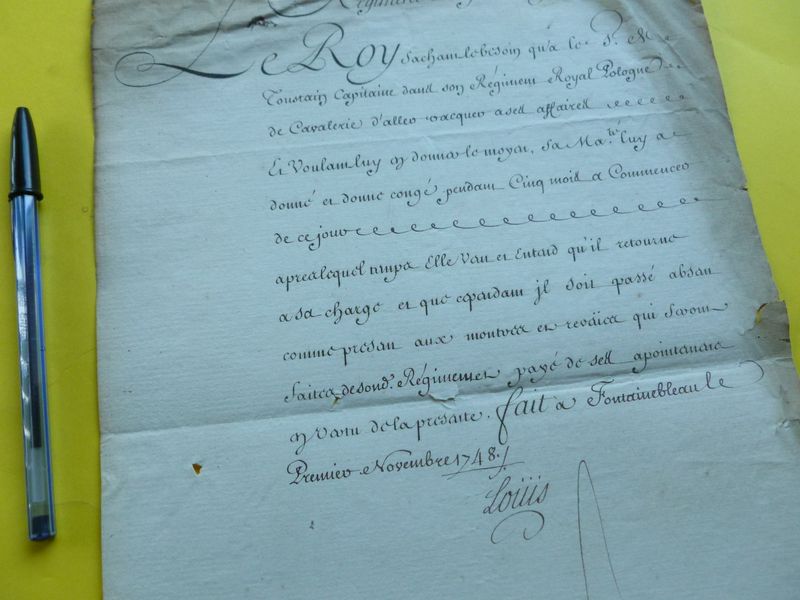 Régiment
Le Roy sachant le besoin qu'a le S. De
Toustain Capitaine dans son Régiment Royal Pologne
de Cavalerie d'aller vacquer a ses affaires
Et Voulant luy en donner le moyen, Sa Ma.té luy a
donné et donne congé pendant Cinq mois a Commencer
de ce jour
apres lequel temps Elle Veut et Entend qu'il retourne
a sa charge et que cependant jl soit passé absent
comme present aux montres et reveües qui seront
faites de sond. Régiment et payé de ses apointemens
en vertu de la presente. fait a Fontainebleau le
Premier Novembre 1748.
Loüis